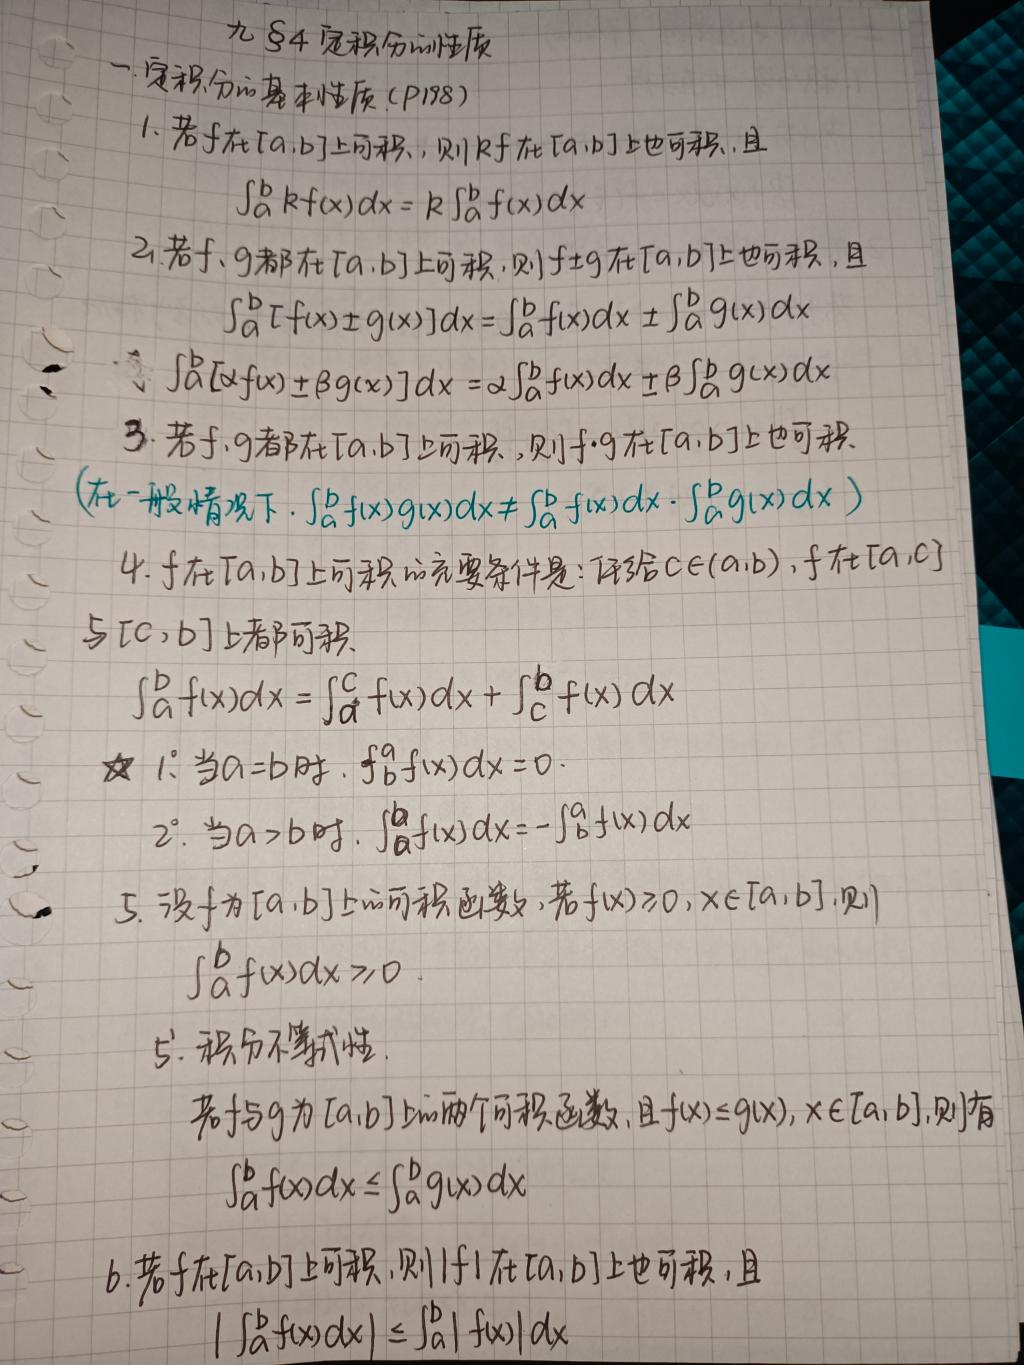 九 §4 定积分的性质
一. 定积分的基本性质 (P198)
1. 若f在[a,b]上可积, 则kf在[a,b]上也可积, 且
∫_a^b kf(x)dx = k∫_a^b f(x)dx
2. 若f、g都在[a,b]上可积, 则f±g在[a,b]上也可积, 且
∫_a^b [f(x)±g(x)]dx = ∫_a^b f(x)dx ± ∫_a^b g(x)dx
∫_a^b [αf(x)±βg(x)]dx = α∫_a^b f(x)dx ± β∫_a^b g(x)dx
3. 若f、g都在[a,b]上可积, 则f·g在[a,b]上也可积.
(在一般情况下. ∫_a^b f(x)g(x)dx ≠ ∫_a^b f(x)dx · ∫_a^b g(x)dx)
4. f在[a,b]上可积的充要条件是: 任给c∈(a,b), f在[a,c]
与[c,b]上都可积.
∫_a^b f(x)dx = ∫_a^c f(x)dx + ∫_c^b f(x)dx
☆ 1°. 当a=b时. ∫_b^a f(x)dx=0.
2°. 当a>b时. ∫_a^b f(x)dx = -∫_b^a f(x)dx
5. 设f为[a,b]上的可积函数, 若f(x)≥0, x∈[a,b], 则
∫_a^b f(x)dx ≥ 0.
5'. 积分不等式性.
若f与g为[a,b]上的两个可积函数, 且f(x)≤g(x), x∈[a,b], 则有
∫_a^b f(x)dx ≤ ∫_a^b g(x)dx
6. 若f在[a,b]上可积, 则|f|在[a,b]上也可积, 且
|∫_a^b f(x)dx| ≤ ∫_a^b |f(x)|dx